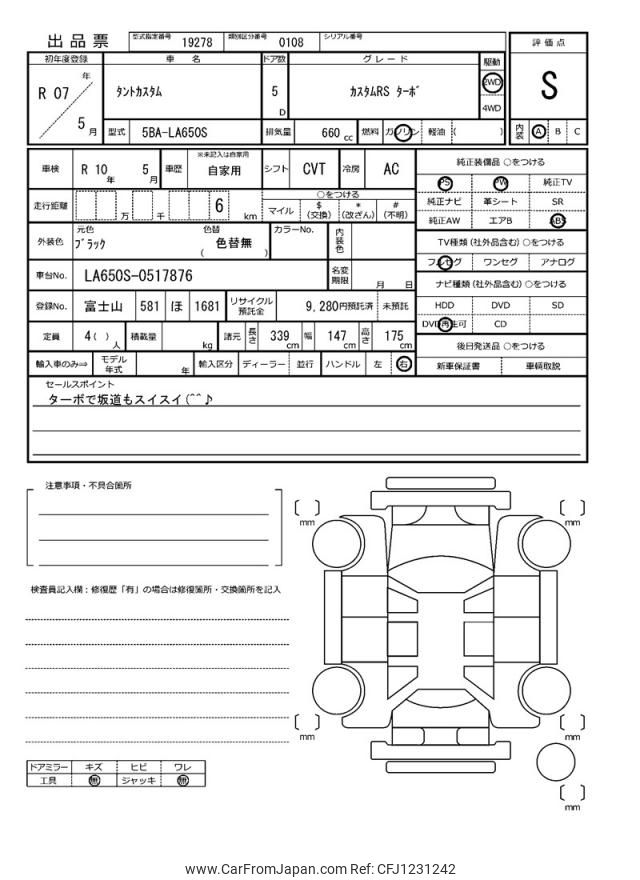 出品票 型式指定番号 19278 類別区分番号 0108 シリアル番号
初年度登録 車名 ドア数 グレード 駆動 評価点
R 07 年 5 月 タントカスタム 5 D カスタムRS ターボ 2WD 4WD S
型式 5BA-LA650S 排気量 660 cc 燃料 ガソリン 軽油 ( ) 内装 A B C
車検 R 10 年 5 月 車歴 ※未記入は自家用 自家用 シフト CVT 冷房 AC 純正装備品 ○をつける
PS PW 純正TV
走行距離 万 千 6 km ○をつける マイル $ (交換) * (改ざん) # (不明) 純正ナビ 革シート SR
純正AW エアB ABS
外装色 元色 ブラック 色替 ( 色替無 ) カラーNo. 内装色 TV種類 (社外品含む) ○をつける
フルセグ ワンセグ アナログ
車台No. LA650S-0517876 名変期限 月 日 ナビ種類 (社外品含む) ○をつける
登録No. 富士山 581 ほ 1681 リサイクル預託金 9,280円預託済 未預託 HDD DVD SD
DVD再生可 CD
定員 4 ( ) 人 積載量 kg 諸元 長さ 339 cm 幅 147 cm 高さ 175 cm 後日発送品 ○をつける
輸入車のみ⇒ モデル年式 年 輸入区分 ディーラー 並行 ハンドル 左 右 新車保証書 車輌取説
セールスポイント
ターボで坂道もスイスイ(^^♪
注意事項・不具合箇所
mm mm
検査員記入欄：修復歴「有」の場合は修復箇所・交換箇所を記入
mm mm
ドアミラー キズ ヒビ ワレ
工具 無 ジャッキ 無
mm
www.CarFromJapan.com Ref: CFJ1231242